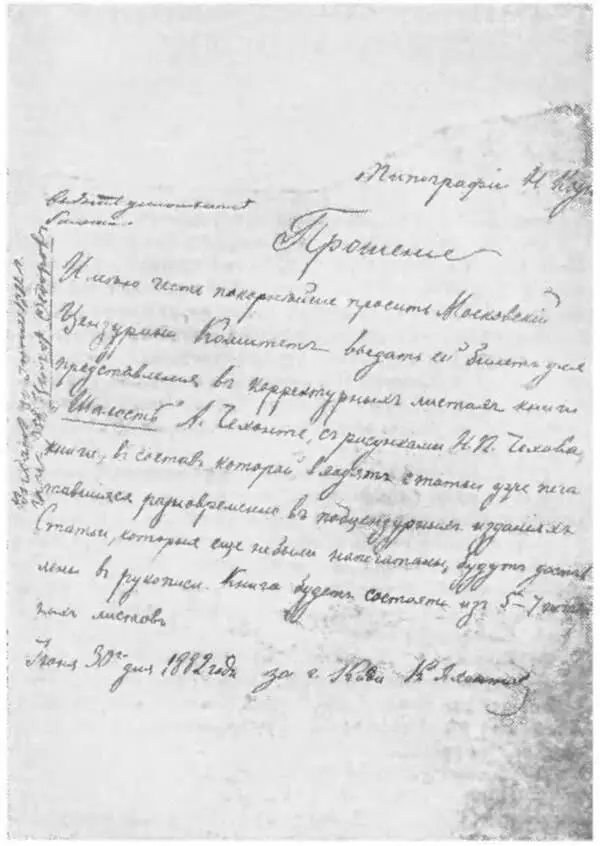 Типографіи Н. Коди
Прошеніе
Имѣю честь покорнѣйше просить Московскій
Цензурный Комитетъ выдать ей билетъ для
представленія въ корректурныхъ листахъ книги
„Шалость" А. Чехонте, съ рисунками Н. П. Чехова,
книги, въ составъ которой входятъ статьи уже печа
тавшіяся разновременно въ подцензурныхъ изданіяхъ
Статьи, которыя еще не были напечатаны, будутъ достав
лены въ рукописи. Книга будетъ состоять изъ 5–7 печат
ныхъ листовъ
Іюня 30го дня 1882 года за г. Коди К Яхонтов